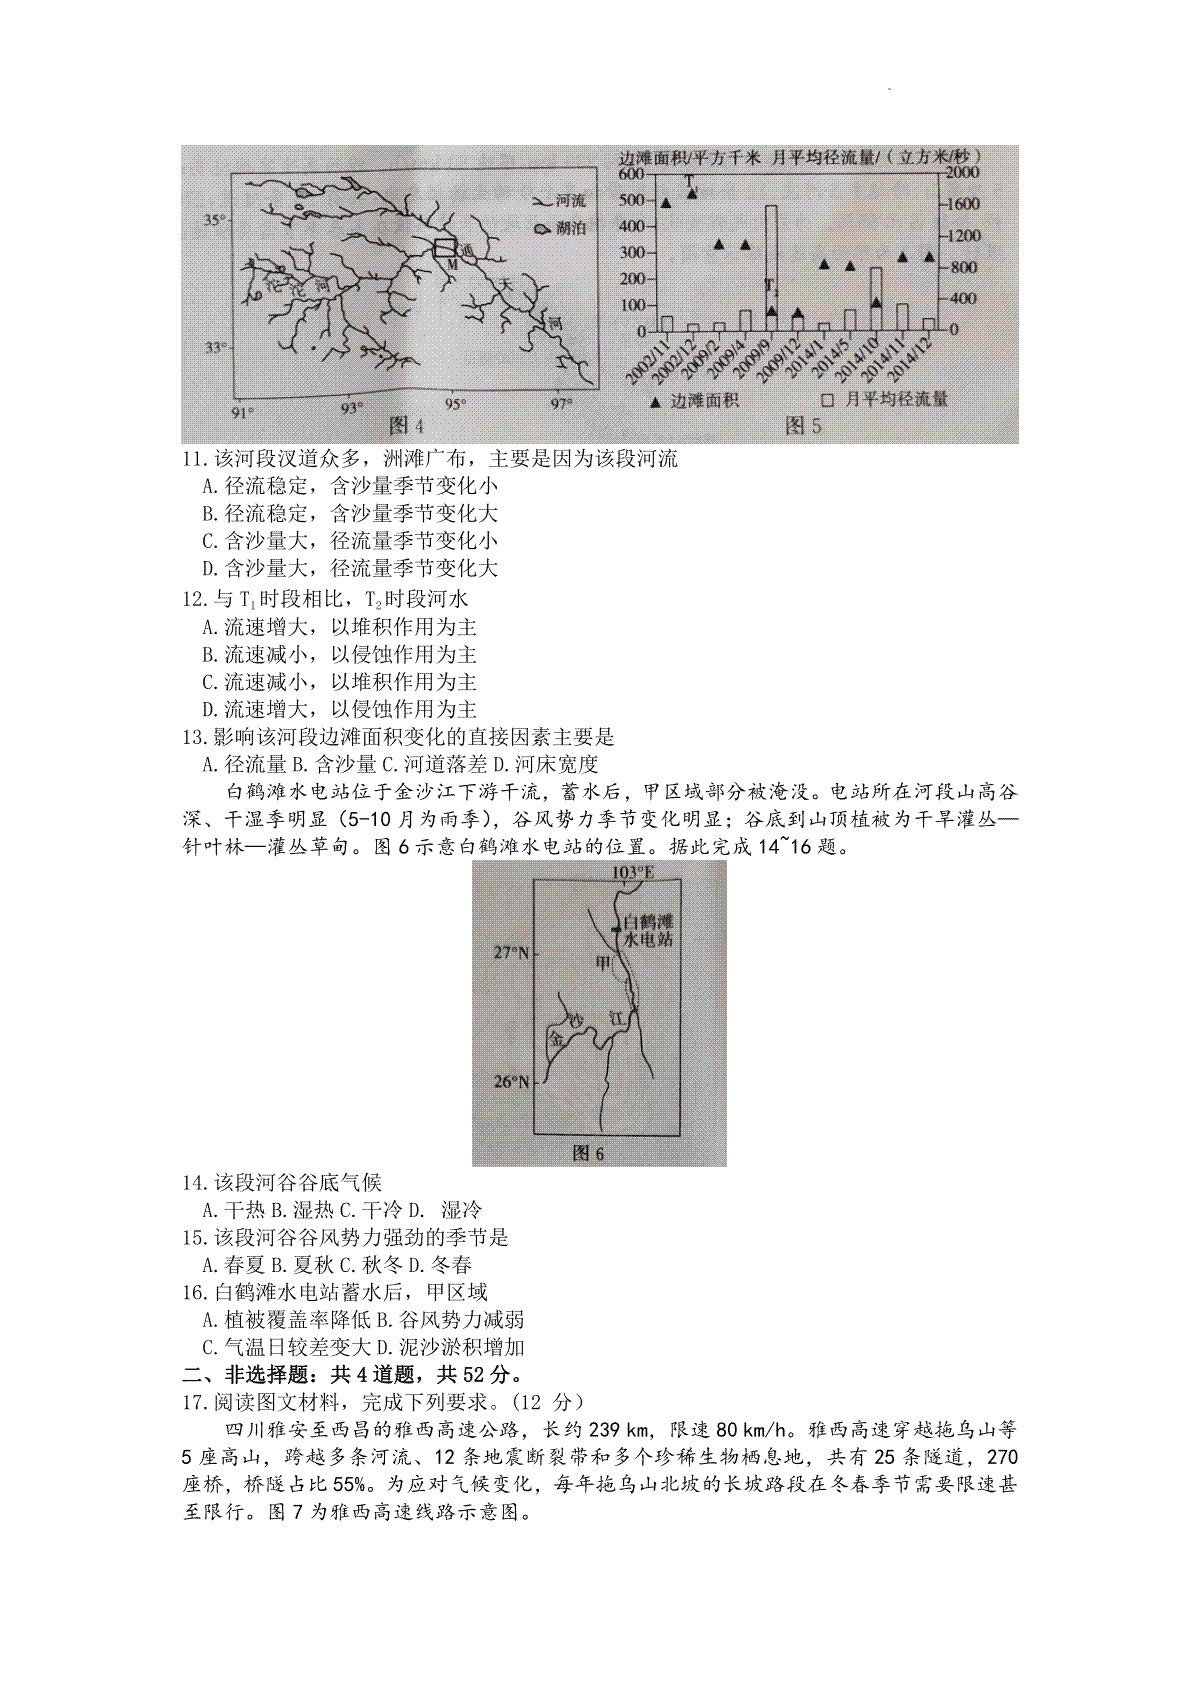 边滩面积/平方千米 月平均径流量/（立方米/秒）
600 2000
500 1600
400 1200
300 800
200 400
100 0
0
T
T2
2002/11 2002/12 2009/2 2009/4 2009/9 2009/12 2014/1 2014/5 2014/10 2014/11 2014/12
▲ 边滩面积 □ 月平均径流量
图 5
河流
湖泊
35°
33°
沱 沱 河
通
天
河
M
91° 93° 95° 97°
图 4
11.该河段汊道众多，洲滩广布，主要是因为该段河流
A.径流稳定，含沙量季节变化小
B.径流稳定，含沙量季节变化大
C.含沙量大，径流量季节变化小
D.含沙量大，径流量季节变化大
12.与 T1时段相比，T2时段河水
A.流速增大，以堆积作用为主
B.流速减小，以侵蚀作用为主
C.流速减小，以堆积作用为主
D.流速增大，以侵蚀作用为主
13.影响该河段边滩面积变化的直接因素主要是
A.径流量 B.含沙量 C.河道落差 D.河床宽度
白鹤滩水电站位于金沙江下游干流，蓄水后，甲区域部分被淹没。电站所在河段山高谷
深、干湿季明显（5-10 月为雨季），谷风势力季节变化明显；谷底到山顶植被为干旱灌丛—
针叶林—灌丛草甸。图 6 示意白鹤滩水电站的位置。据此完成 14~16 题。
103°E
白鹤滩
水电站
27°N
甲
金 沙 江
26°N
图 6
14.该段河谷谷底气候
A.干热 B.湿热 C.干冷 D. 湿冷
15.该段河谷谷风势力强劲的季节是
A.春夏 B.夏秋 C.秋冬 D.冬春
16.白鹤滩水电站蓄水后，甲区域
A.植被覆盖率降低 B.谷风势力减弱
C.气温日较差变大 D.泥沙淤积增加
二、非选择题：共 4 道题，共 52 分。
17.阅读图文材料，完成下列要求。(12 分）
四川雅安至西昌的雅西高速公路，长约 239 km，限速 80 km/h。雅西高速穿越拖乌山等
5 座高山，跨越多条河流、12 条地震断裂带和多个珍稀生物栖息地，共有 25 条隧道，270
座桥，桥隧占比 55%。为应对气候变化，每年拖乌山北坡的长坡路段在冬春季节需要限速甚
至限行。图 7 为雅西高速线路示意图。